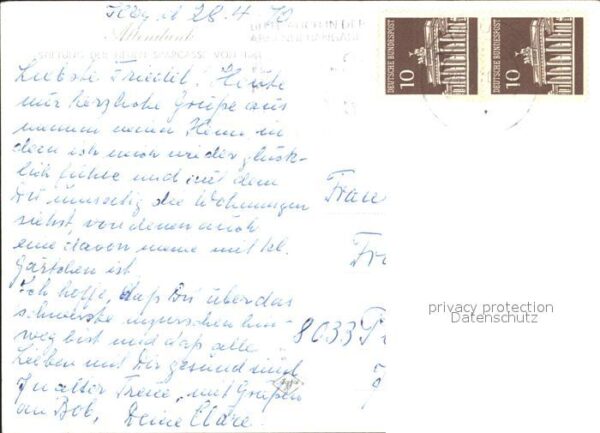 28.4.70
Altendank
STIFTUNG DER NEUEN SPARCASSE VON 1864
Liebste Friedel! Heute
nur herzliche Grüße aus
meinem neuen Heim in
dem ich mich wieder glück-
lich fühle und auf dem
Du umseitig die Wohnungen
siehst, von denen auch
eine davon meine mit kl.
Gärtchen ist.
Ich hoffe, daß Du über das
schwerste inzwischen hin-
weg bist und daß alle
Lieben mit Dir gesund sind
In alter Treue, mit Grüßen
an Bob, Deine Cläre.
DEUTSCHE BUNDESPOST
10
DEUTSCHE BUNDESPOST
10
Frau
Fr
8033 Pl
privacy protection
Datenschutz